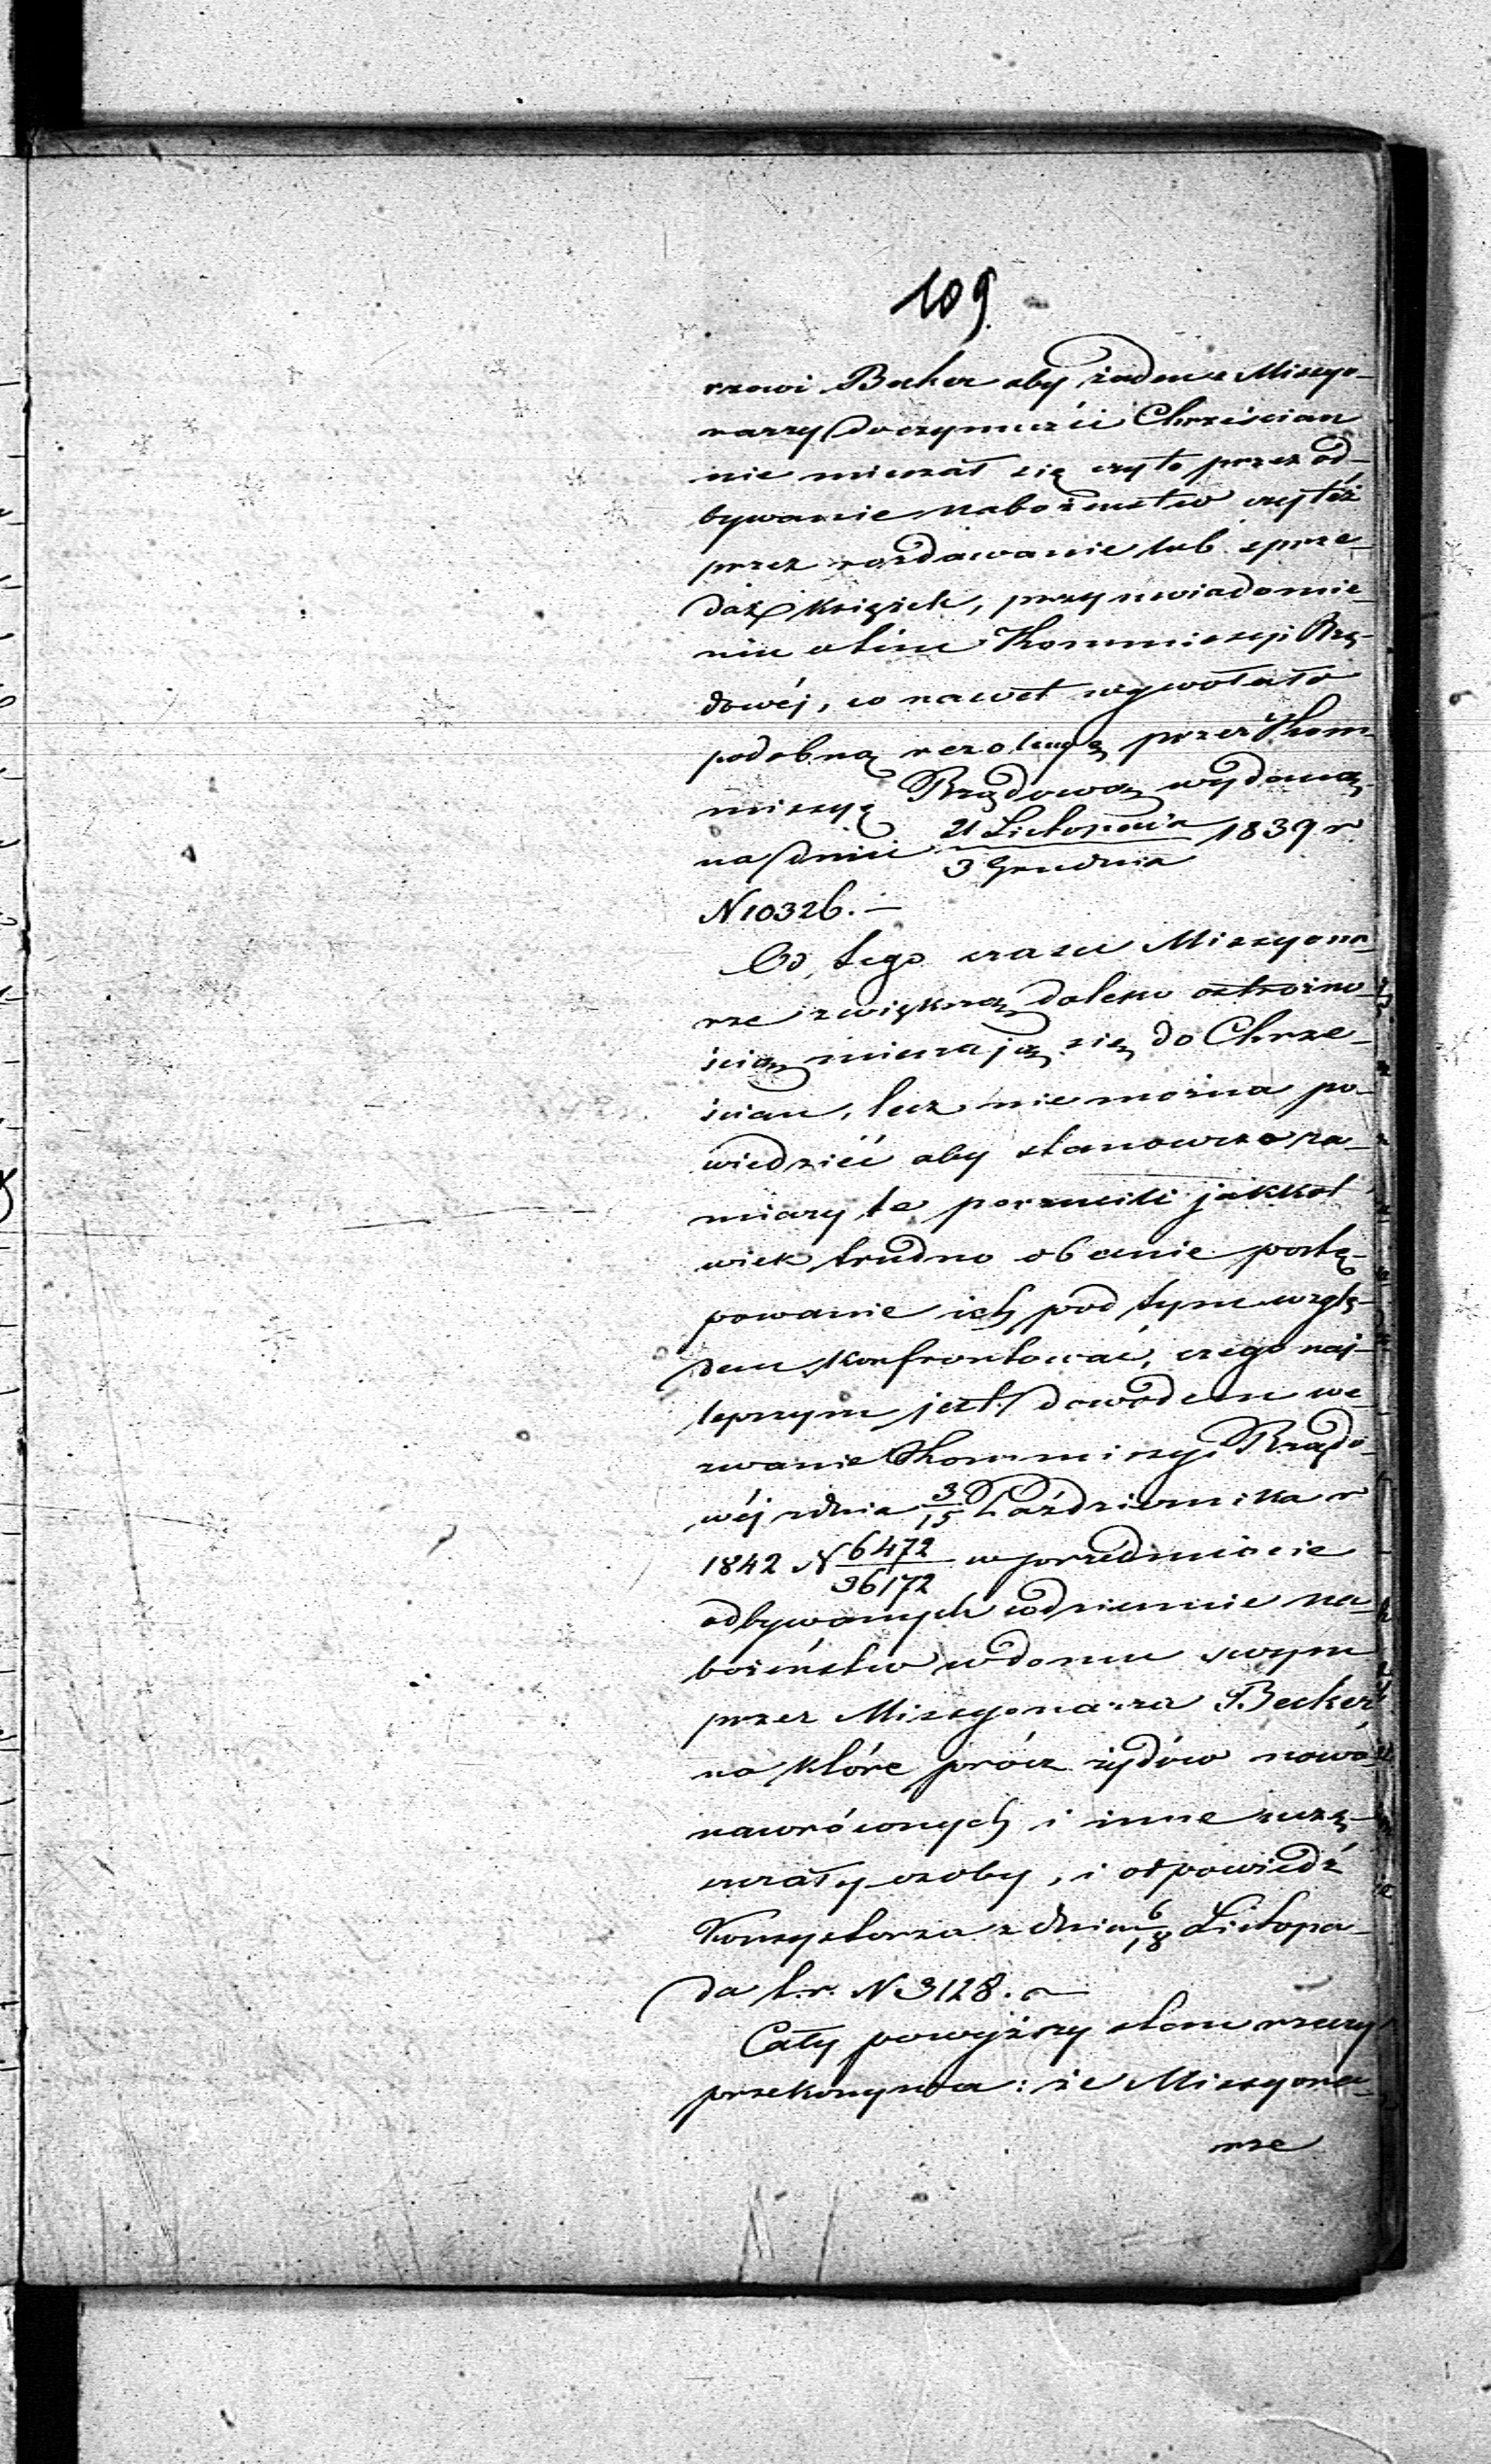 109.
rzowi Becker aby żaden z Missyo-
narzy do czynności Chrześcian
nie mieszał się czyto przez od-
bywanie nabożeństw czyteż
przez rozdawanie lub sprze-
daż książek, przy uwiadomie-
niu o tém Kommissyi Rzą-
dowéj, co nawet wywołało
podobną rezolucyą przez Kom-
missyą Rządową wydaną
na dniu 21 Listopada / 3 Grudnia 1839 r
N 10326. —
Od tego czasu Missyona-
rze z większą daleko ostrożno
ścią mieszają się do Chrze-
ścian, lecz nie można po-
wiedzieć aby stanowczo za-
miary te porzucili jakkol
wiek trudno obecnie postę-
powanie ich pod tym wzglę-
dem konfrontować, czego naj-
lepszym jest dowodem we
zwanie Kommissyi Rządo-
wéj z dnia 3/15 Października r
1842 N 6472/36172 w przedmiocie
odbywanych codziennie na-
bożeństw w domu swym
przez Missyonarza Becker
na które prócz żydów nowo
nawróconych i inne uczę-
szczały osoby, i odpowiedź
Konsystorza z dnia 6/18 Listopa-
da t.r. N 3128. —
Cały powyższy stan rzeczy
przekonywa: że Missyona-
rze